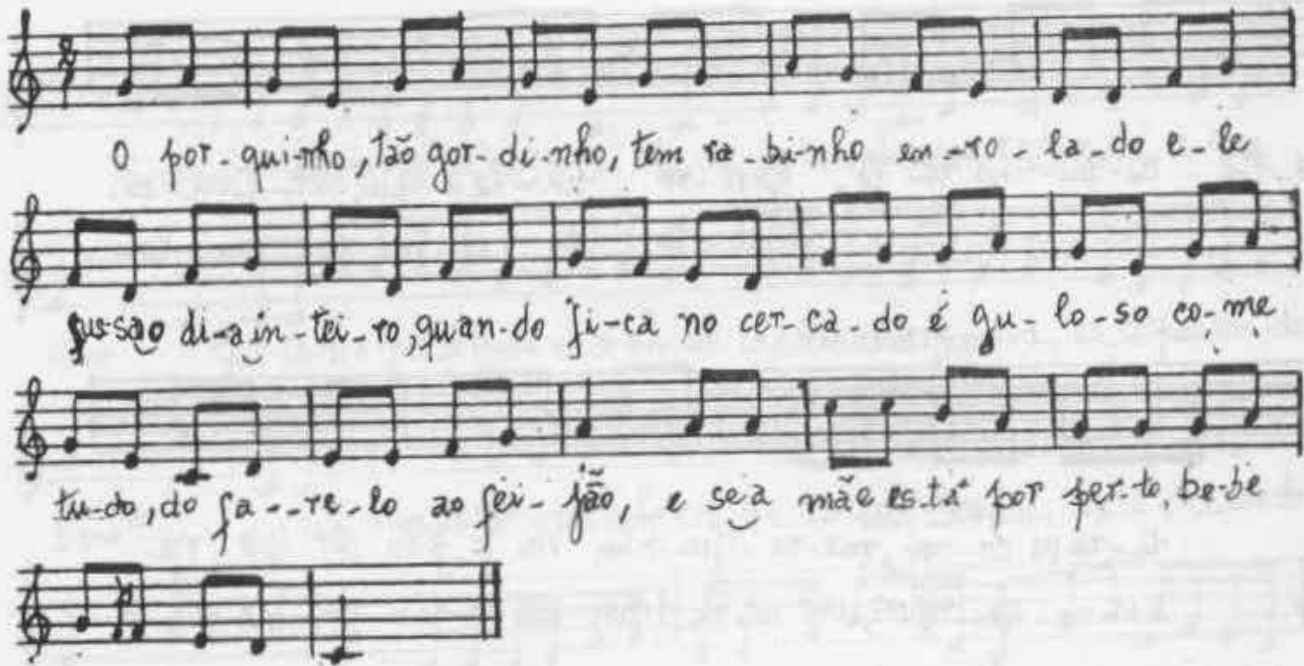 O por-qui-nho, tão gor-di-nho, tem ra-bi-nho en--ro-la-do e-le
fus-sa o di-a in-tei-ro, quan-do fi-ca no cer-ca-do é gu-lo-so co-me
tu-do, do fa--re-lo ao fei-jão, e se a mãe es-tá por per-to, be-be